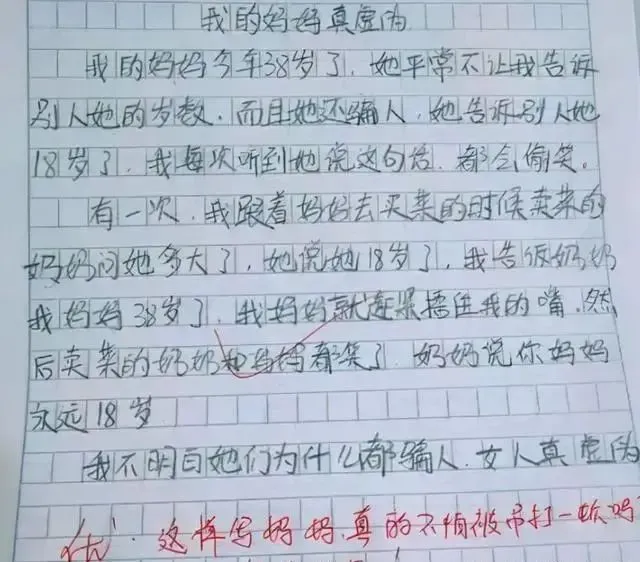 我的妈妈真虚伪
我的妈妈今年38岁了，她平常不让我告诉
别人她的岁数，而且她还骗人，她告诉别人她
18岁了，我每次听到她说这句话，都会偷笑。
有一次，我跟着妈妈去买菜的时候卖菜的
奶奶问她多大了，她说她18岁了，我告诉奶奶
我妈妈38岁了，我妈妈就赶紧捂住我的嘴，然
后卖菜的奶奶和妈妈都笑了，奶奶说你妈妈
永远18岁
我不明白她们为什么都骗人，女人真虚伪
优，这样写妈妈，真的不怕被吊打一顿吗